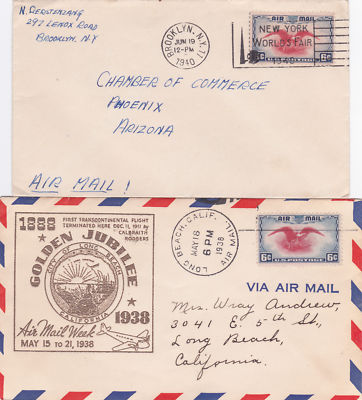 N. Gerstenzang
297 Lenox Road
Brooklyn, N.Y
BROOKLYN, N.Y. 11
JUN 19
12-PM
1940
NEW YORK
WORLD'S FAIR
1940
AIR MAIL
6¢ 6¢
Chamber of Commerce
Phoenix
Arizona
Air Mail!
1888
FIRST TRANSCONTINENTAL FLIGHT
TERMINATED HERE DEC. 11, 1911 by
CALBRAITH
RODGERS
GOLDEN JUBILEE
CITY OF LONG BEACH
CALIFORNIA
1938
Air Mail Week
MAY 15 to 21, 1938
LONG BEACH, CALIF.
MAY 18
6 PM
1938
AIR MAIL
AIR MAIL
6¢ U.S. POSTAGE 6¢
VIA AIR MAIL
Mrs. Wray Andrew,
3041 E. 5th St.,
Long Beach,
California.